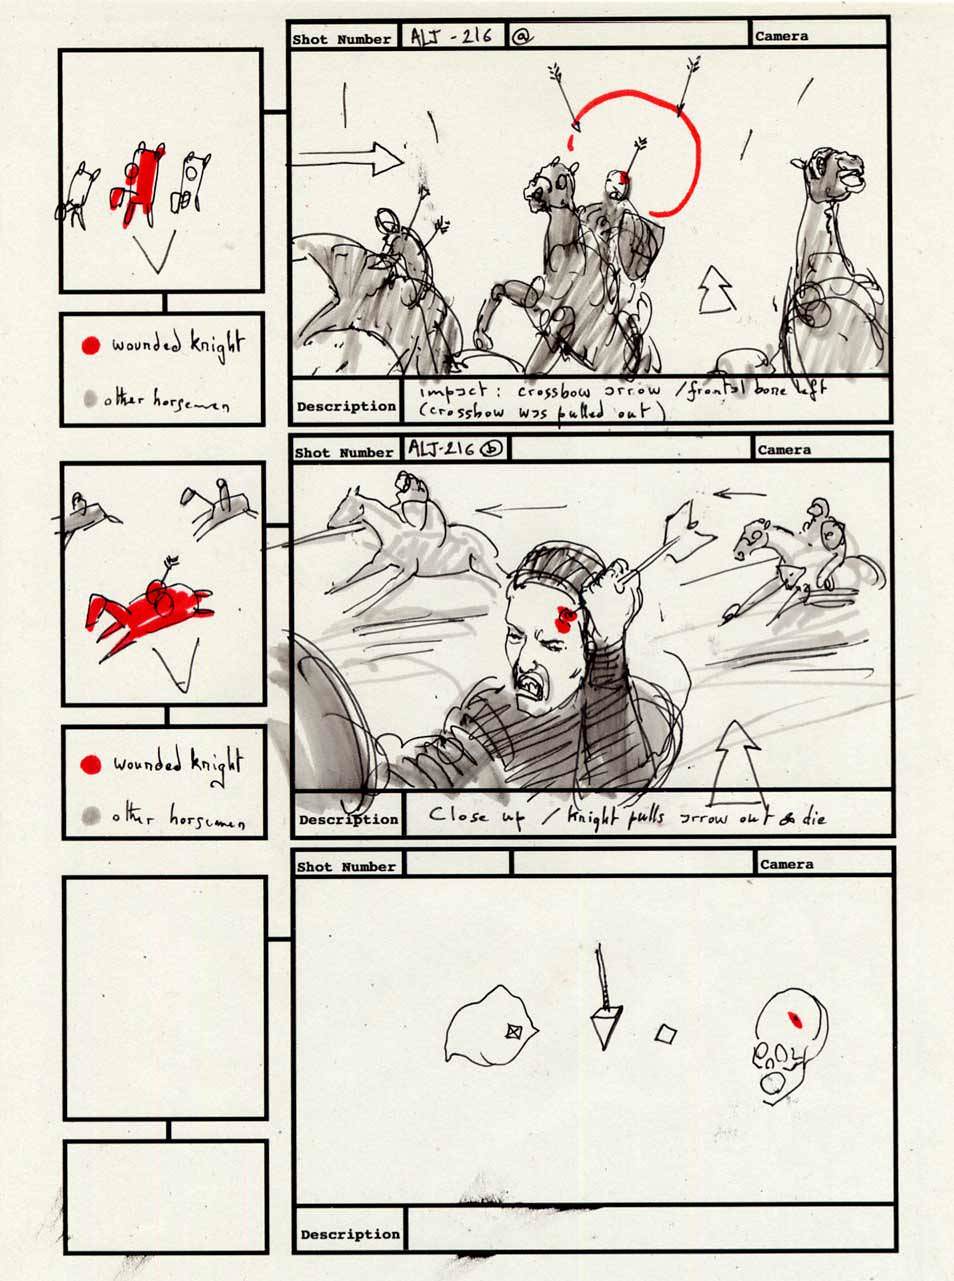 Shot Number ALJ-216 @ Camera
wounded knight
other horsemen
Description impact : crossbow arrow / frontal bone left
(crossbow was pulled out)
Shot Number ALJ-216 b Camera
wounded knight
other horsemen
Description Close up / knight pulls arrow out & die
Shot Number Camera
Description